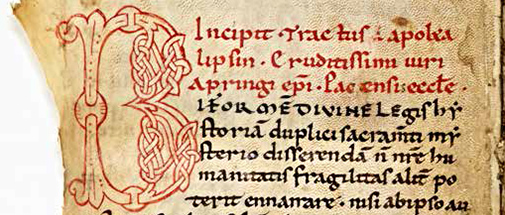 Incipit · Trac tus ī apoka
lipsin · Eruditissimi uiri
Apringi ep̄i · Pacensis eccl̄e ·
BIFOR MĒ DIVINE LEGIS hy
storiā duplici sacram̄ti my
sterio disserendā n̄ nr̄e hu
manitatis fragilitas alit̄ po
terit ennarrare · nisi abipso au